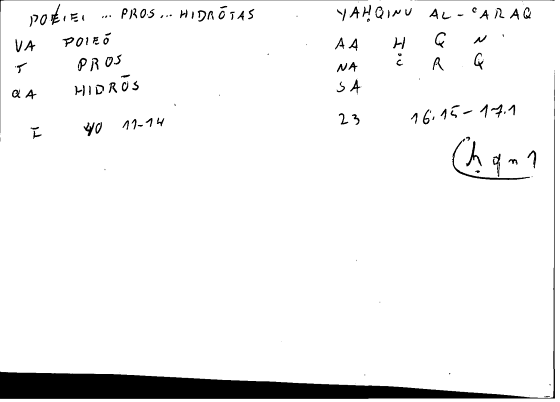 POIEI ... PROS ... HIDRŌTAS YAḤQINU AL-ᶜARAQ
VA POIEŌ AA Ḥ Q N
T PROS NA ᶜ R Q
QA HIDRŌS SA
I 40 11-14 23 16.15-17.1
ḥqn1